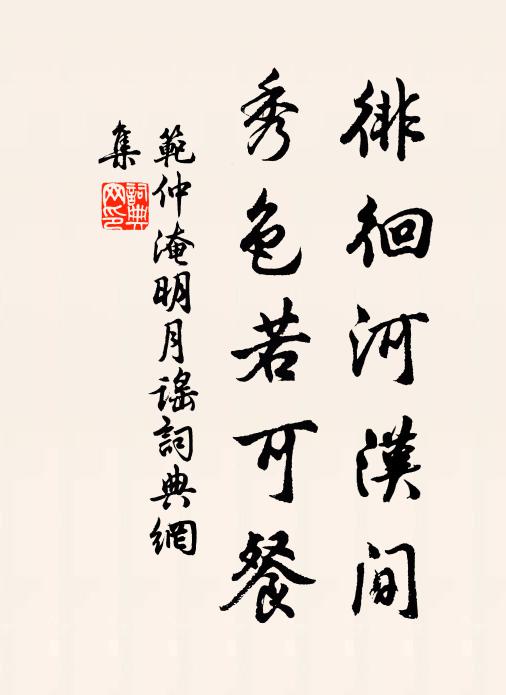 徘徊河漢间
秀色若可餐
範仲淹明月謠詞典網
集
詞典
网印